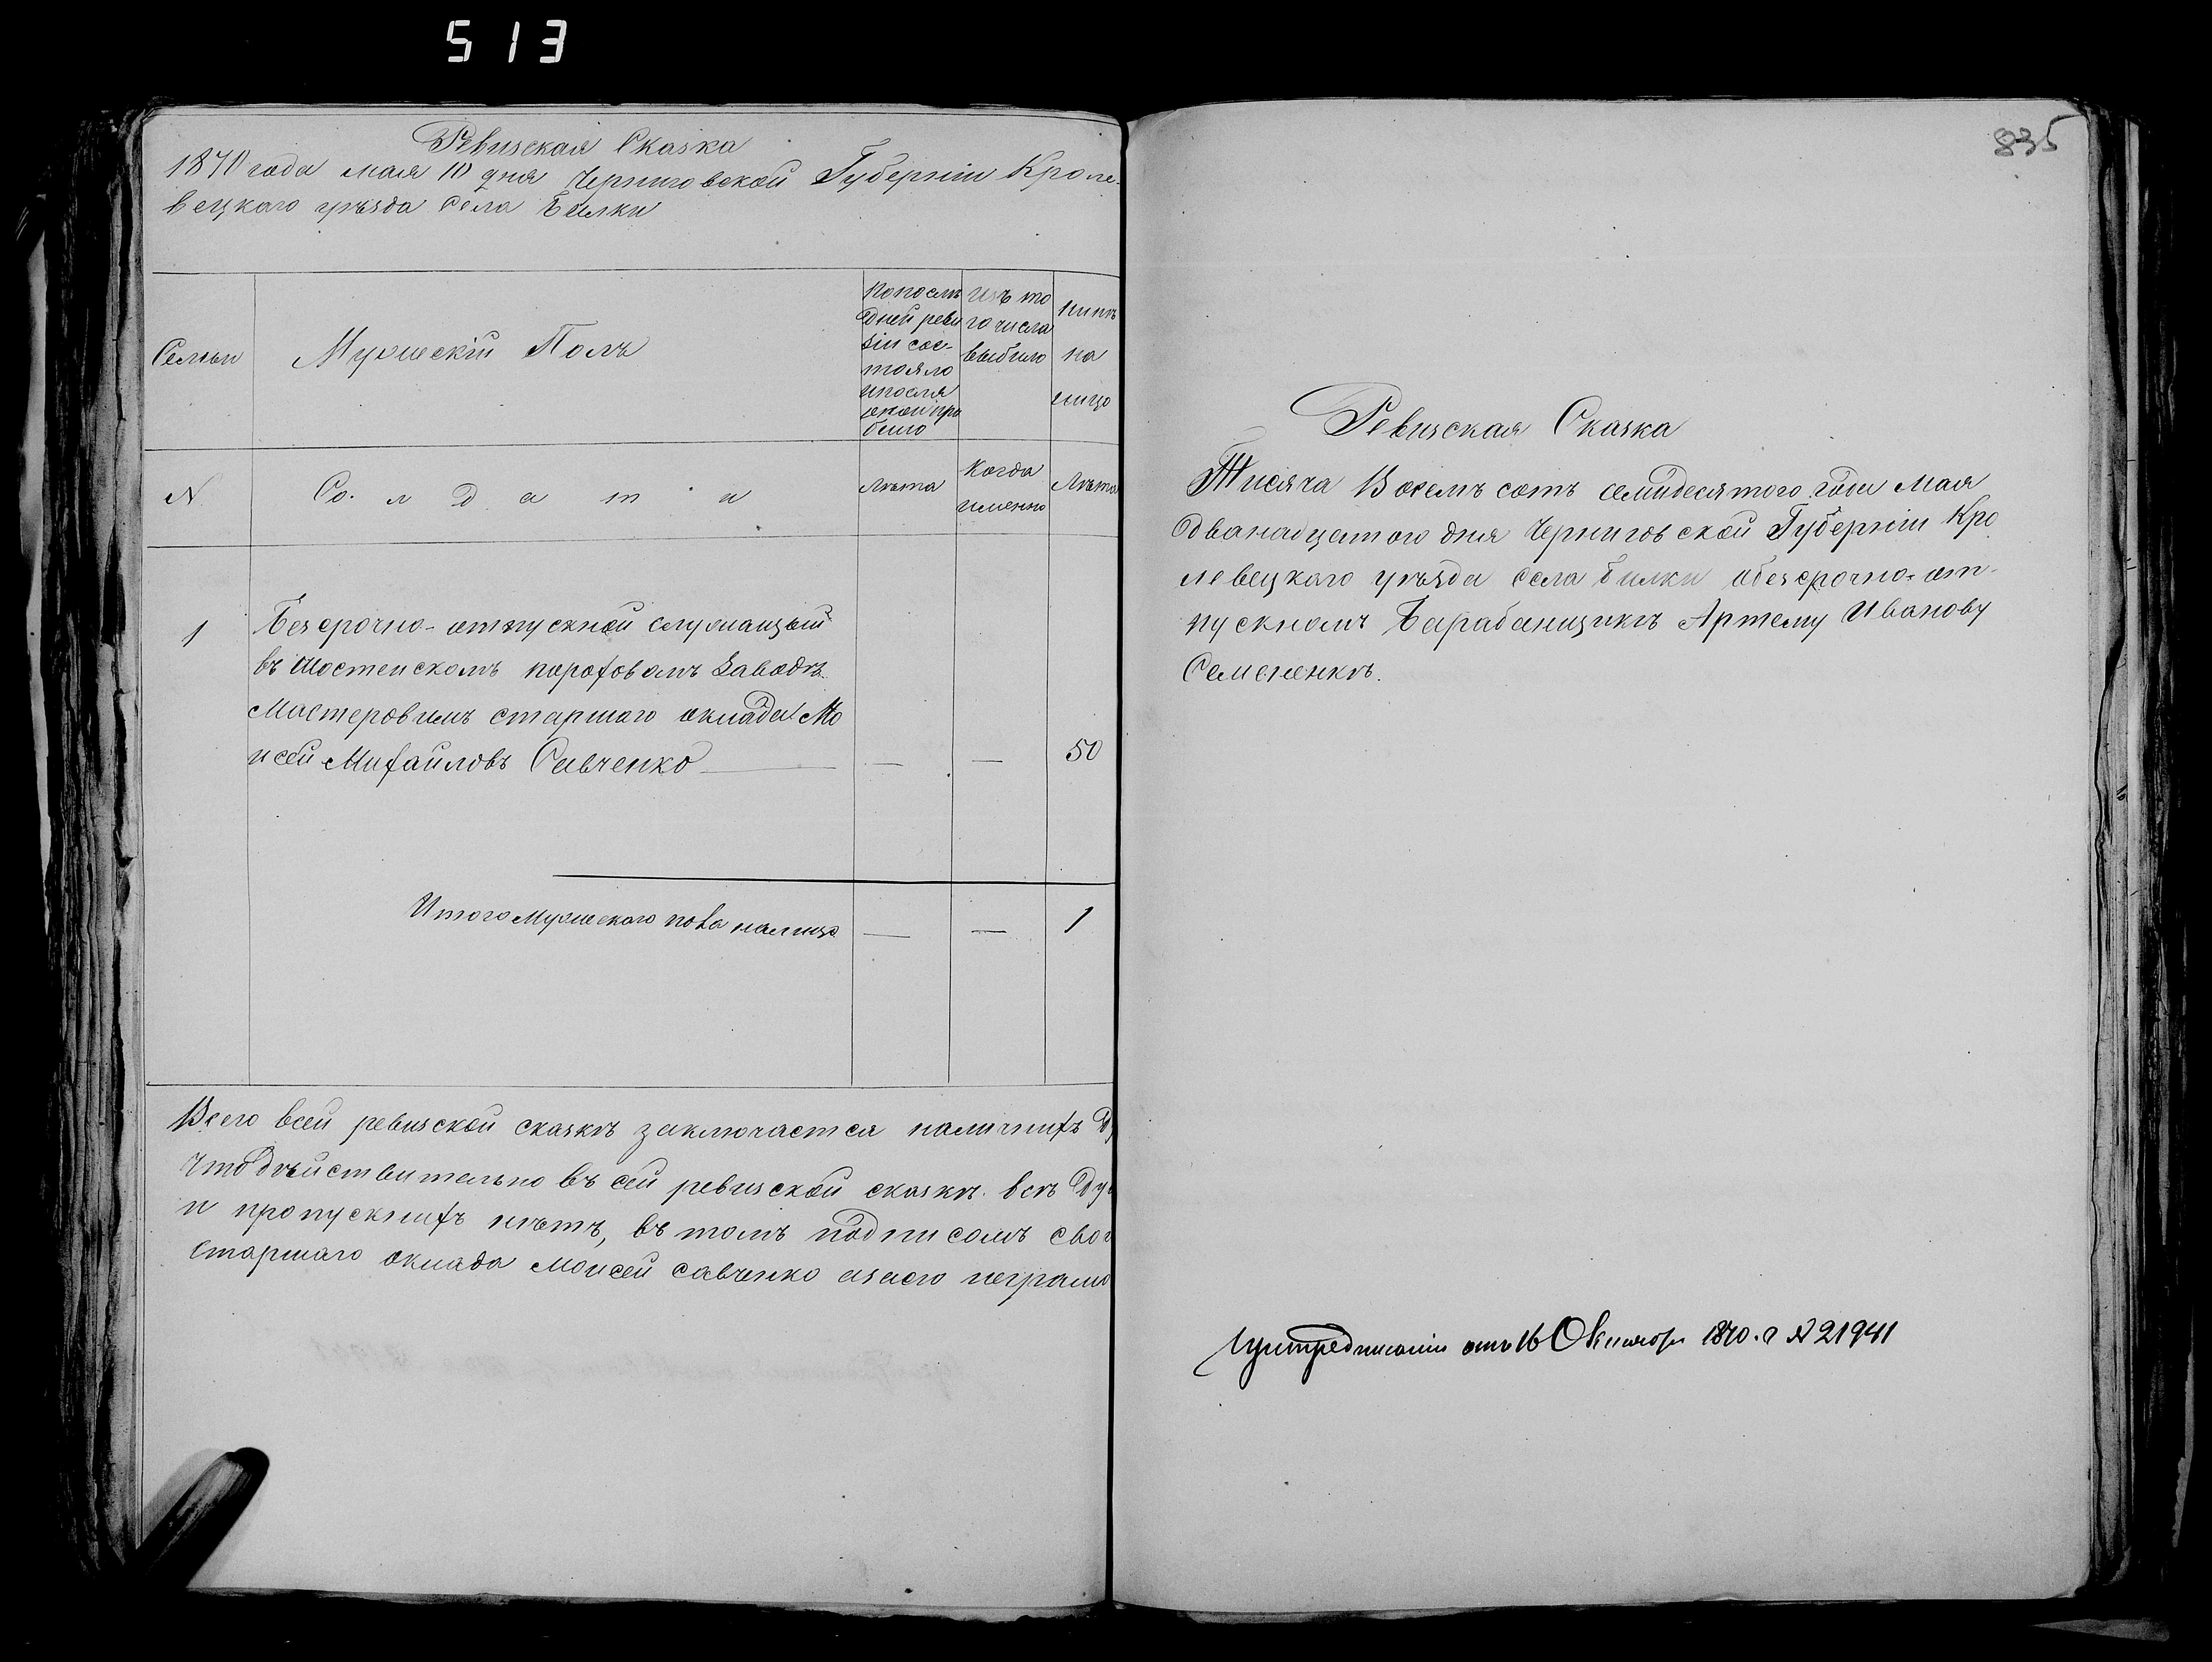 513
Ревизская Сказка
1870 года мая 10 дня Черниговской Губерніи Кроле-
вецкаго уѣзда села Билки
Семьи
Мужескій Полъ
По после
дней реви
зіи сос-
тояло
и после
оной при
было
Изъ то
го числа
выбило
Нинѣ
на
лицо
N
Солдати
Лѣта
Когда
именно
Лѣта
1
Безсрочно-отпускной служащый
въ Шостенскомъ пороховомъ Заводѣ
Мастеровимъ старшого оклада Мо
исей Михайловъ Савченко — — 50
Итого Мужескаго пола налицо — — 1
Всего всей ревизской сказкѣ заключается наличнихъ
Что дѣйствительно въ сей ревизской сказкѣ всѣ
и пропускнихъ нѣтъ, въ томъ подписомъ
старшаго оклада Моисей Савченко азаего
835
Ревизская Сказка
Тисяча Восемъ сотъ семидесятого года Мая
дванадцатого дня Черниговской Губерніи Кро
левецкаго уѣзда села билки обезсрочно-от-
пускномъ Барабанщикѣ Артему Иванову
Семененкѣ.
При предписаніи отъ 16 Октября 1870. г N 21941